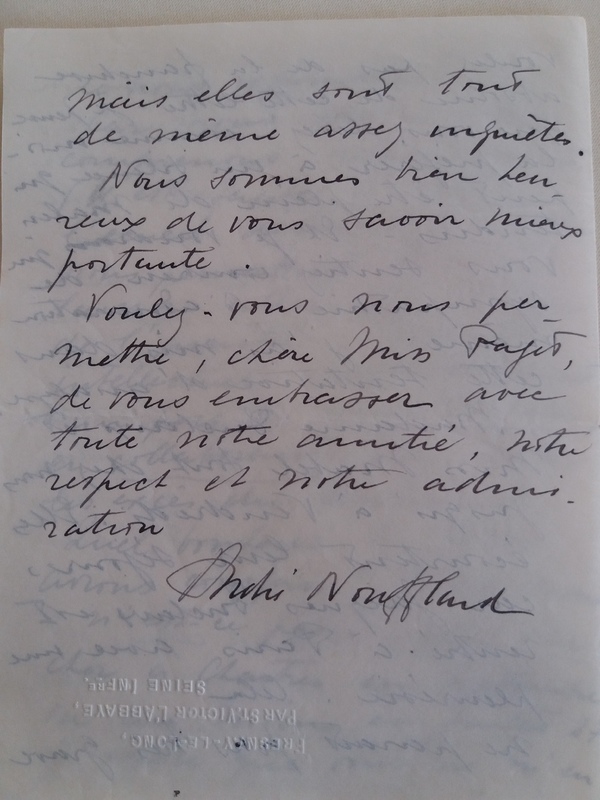 mais elles sont tout
de même assez inquiètes.
Nous sommes bien heu-
reux de vous savoir mieux
portante.
Voulez-vous nous per-
mettre, chère Miss Paget,
de vous embrasser avec
toute notre amitié, notre
respect et notre admi-
ration
André Noufflard
FRESNAY-LE-LONG,
PAR ST VICTOR L'ABBAYE,
SEINE INFRE